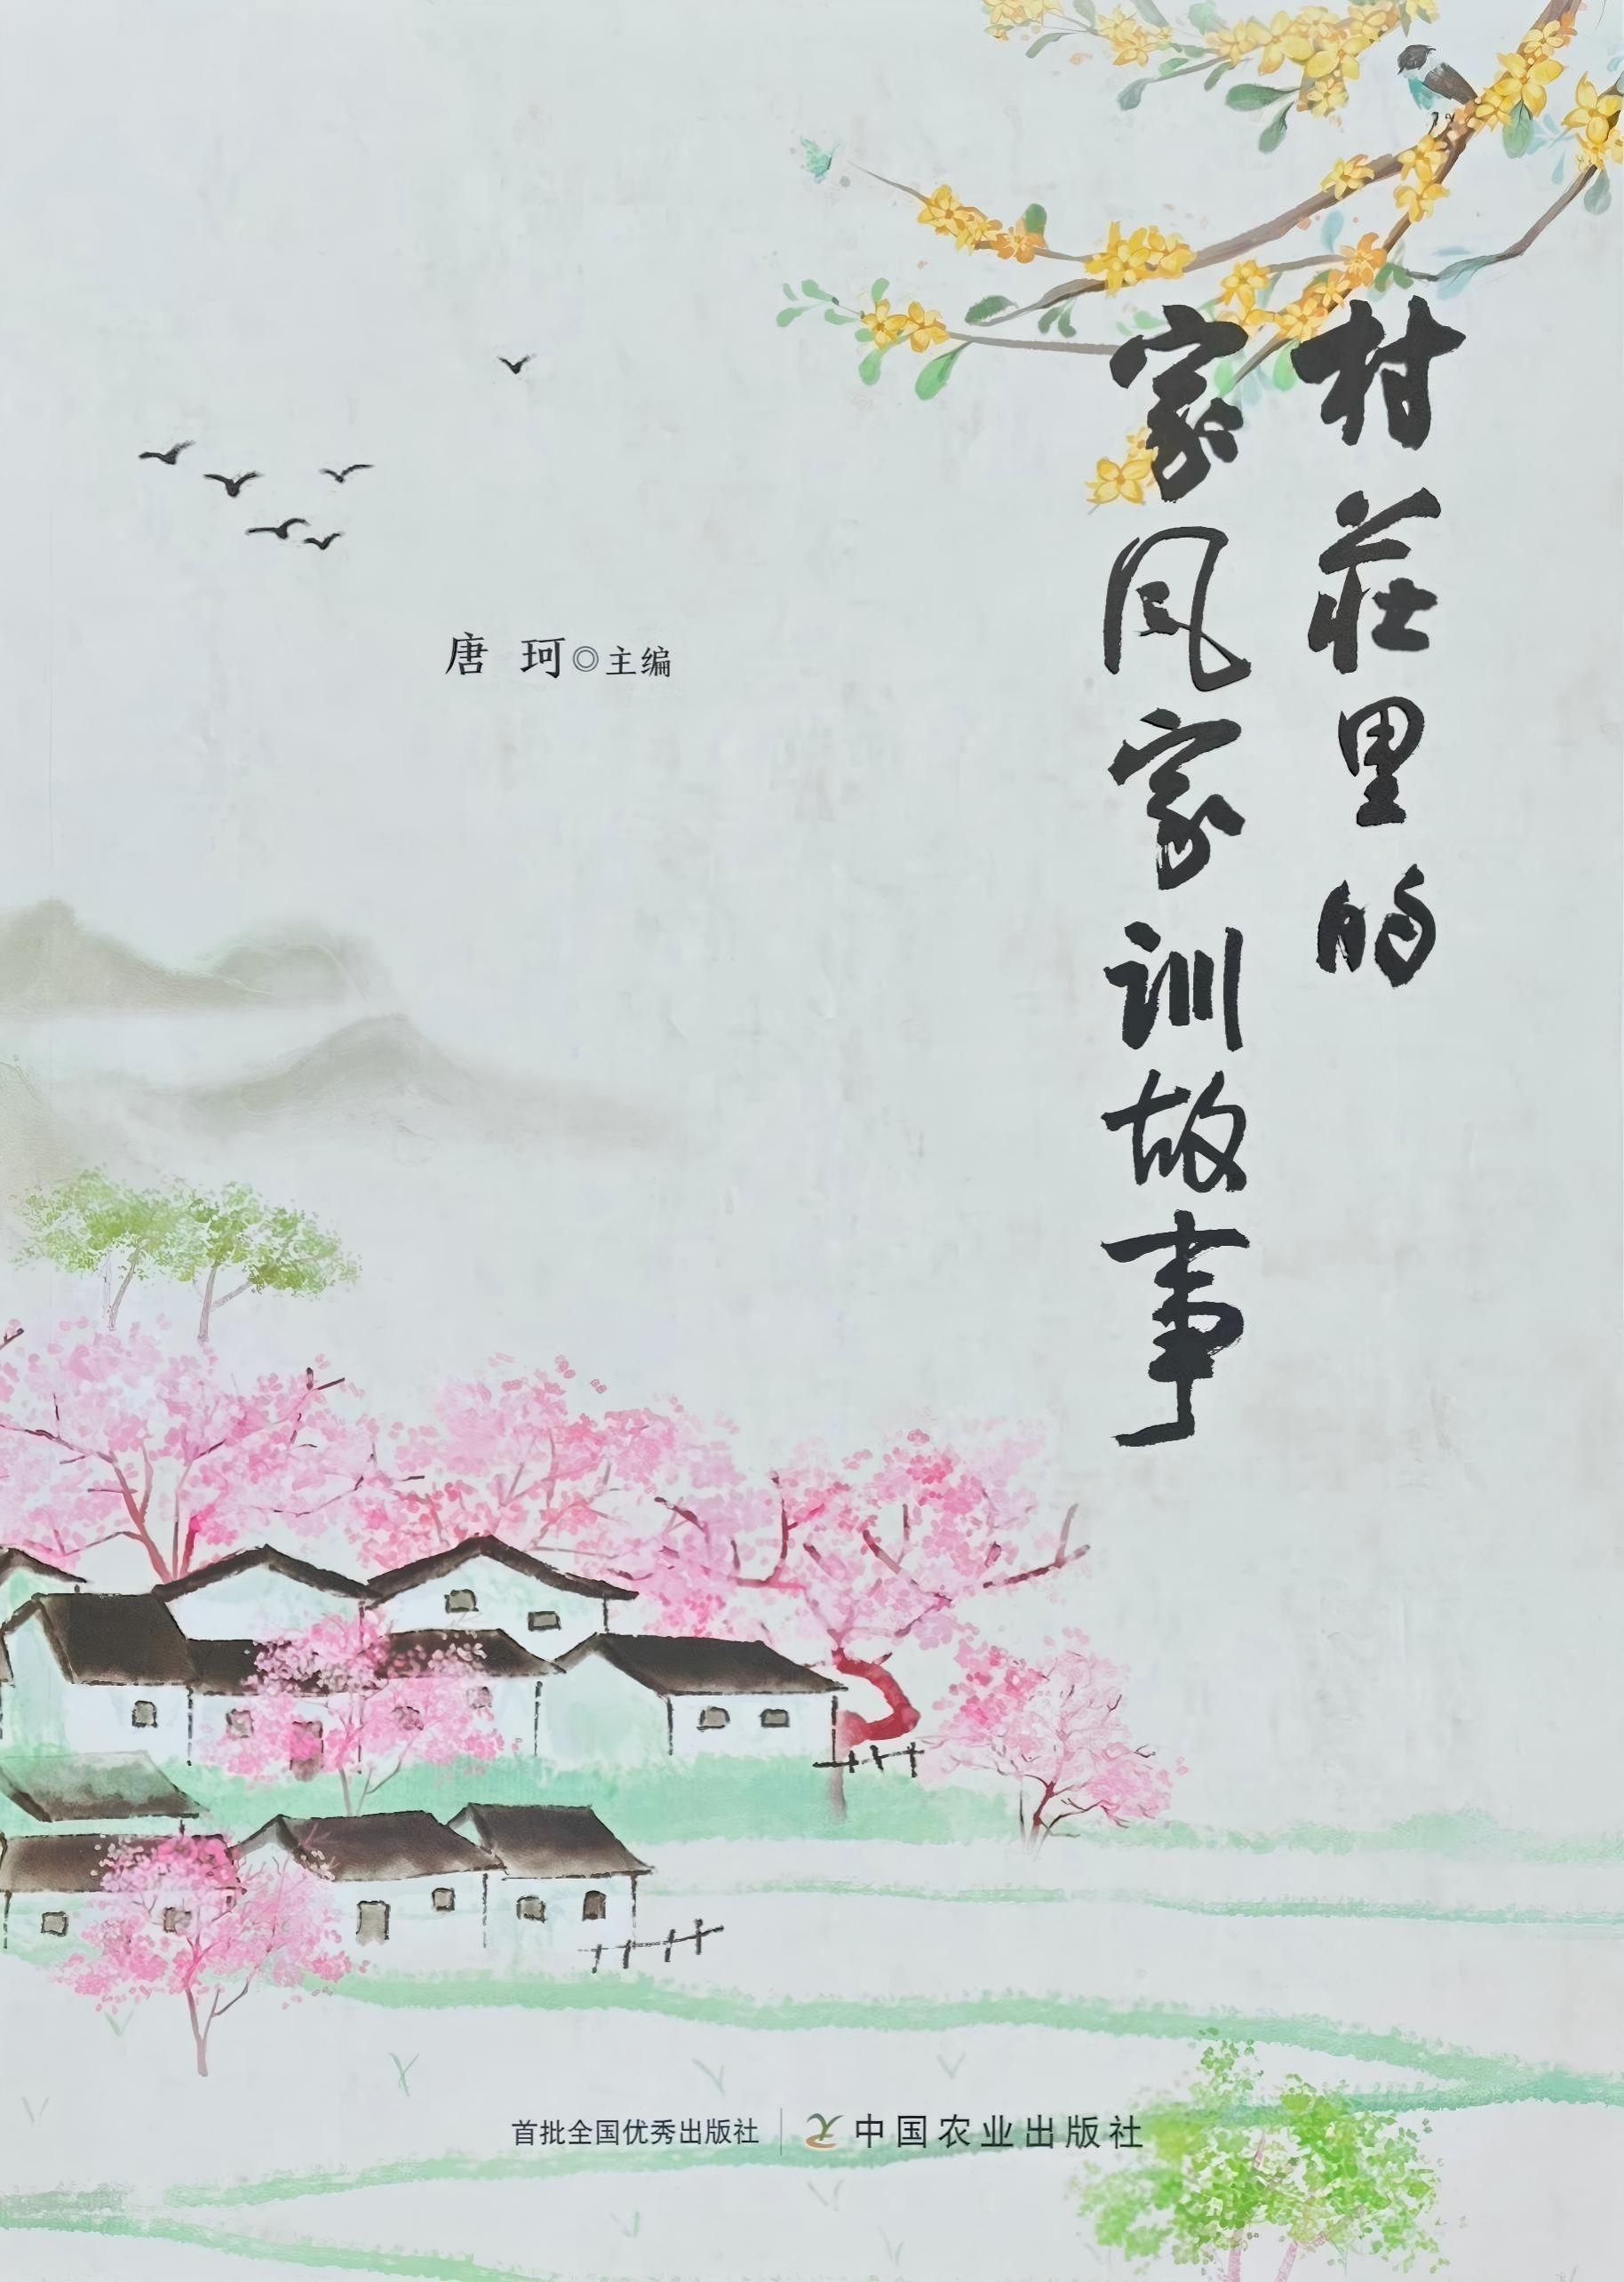 村莊里的
家风家训故事
唐 珂◎主编
首批全国优秀出版社 中国农业出版社